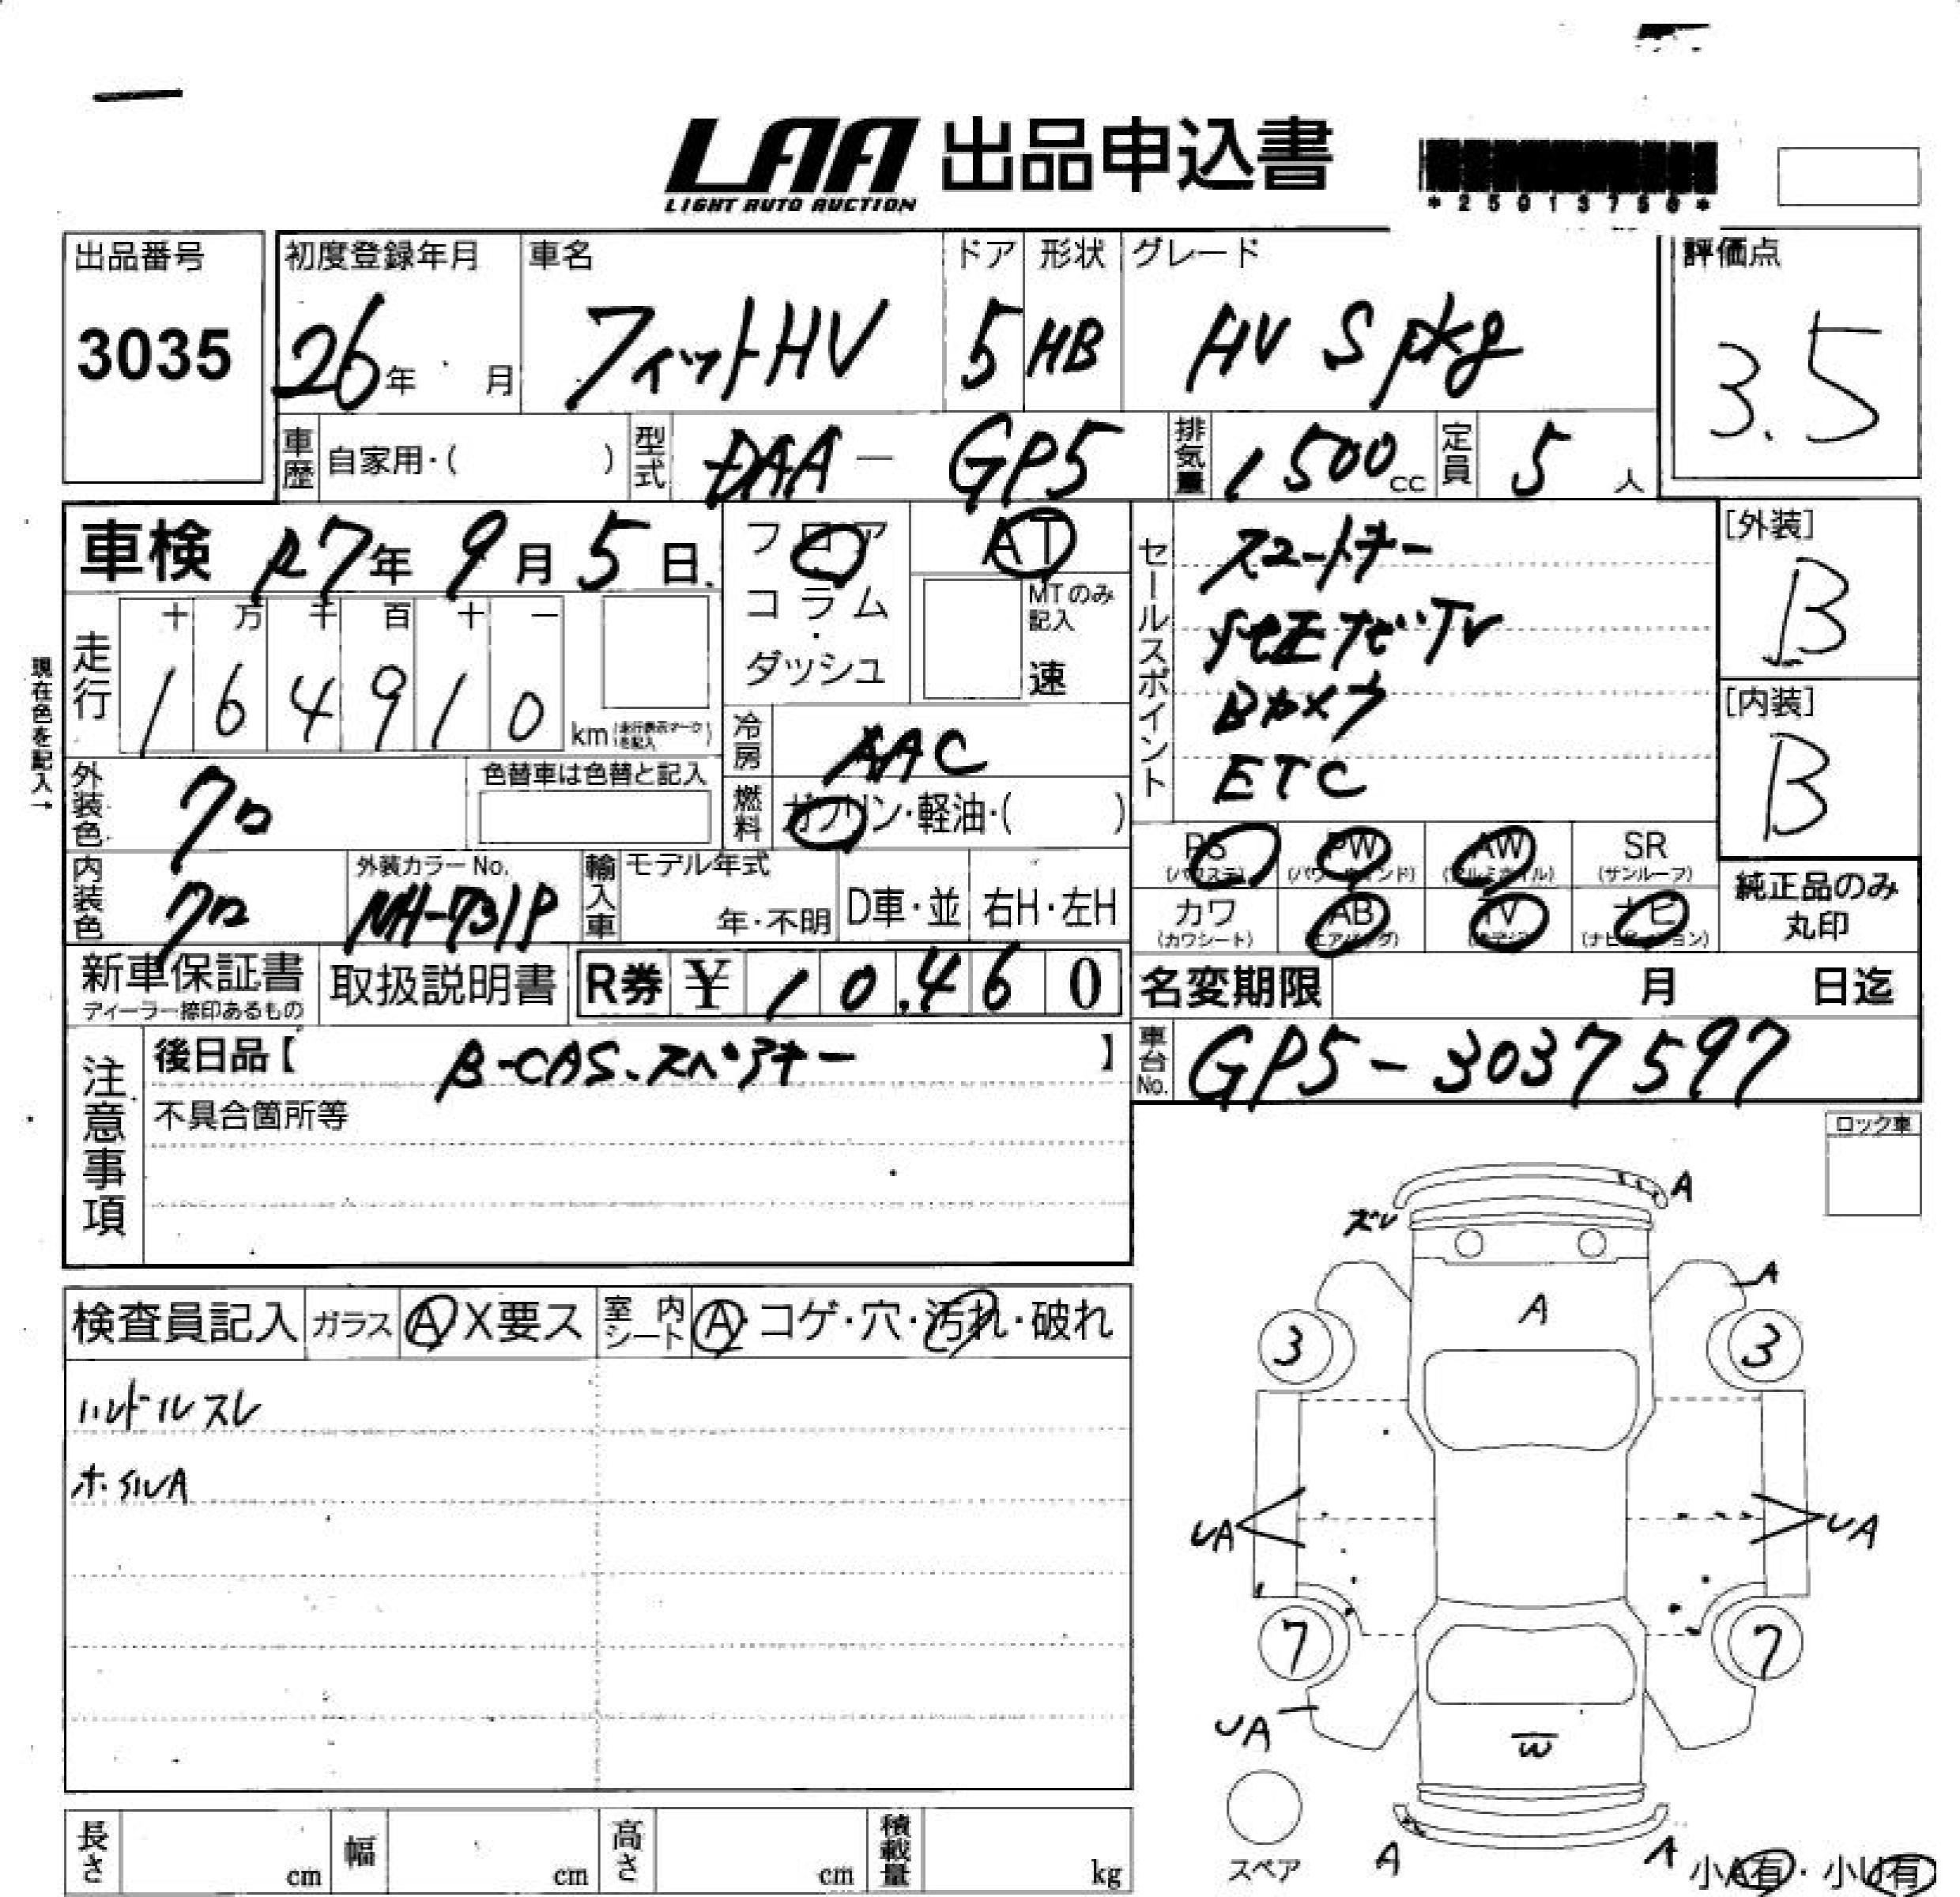 LAA 出品申込書
LIGHT AUTO AUCTION
出品番号
3035
初度登録年月
26年 月
車名
フィットHV
ドア
5
形状
HB
グレード
HV S pkg
評価点
3.5
車歴 自家用・( )
型式 DAA － GP5
排気量 1500cc
定員 5人
車検 R7年 9月 5日
フロア
コラム・ダッシュ
AT
MTのみ記入
速
走行 十 万 千 百 十 一
164910 km (走行表示マークを記入)
現在色を記入→
冷房 AAC
燃料 ガソリン・軽油・( )
外装色 クロ
色替車は色替と記入
内装色 クロ
外装カラーNo.
NH-731P
輸入車 モデル年式
年・不明
D車・並
右H・左H
セールスポイント
スマートキー
純正ナビ・TV
Bカメラ
ETC
[外装]
B
[内装]
B
PS (パワステ)
PW (パワーウィンド)
AW (アルミホイル)
SR (サンルーフ)
カワ (カワシート)
AB (エアバッグ)
TV
ナビ (ナビゲーション)
純正品のみ丸印
新車保証書
ディーラー捺印あるもの
取扱説明書
R券 ¥ 10,460
名変期限 月 日迄
車台No. GP5-3037597
注意事項
後日品【 B-CAS、スペアキー 】
不具合箇所等
ロック車
検査員記入
ガラス A X要ス
室内シート A・コゲ・穴・汚れ・破れ
ハンドルスレ
ホイルA
A
ズレ
A
A
3
3
UA
UA
7
7
UA
W
スペア
A
A
小A有・小U有
長さ cm
幅 cm
高さ cm
積載量 kg